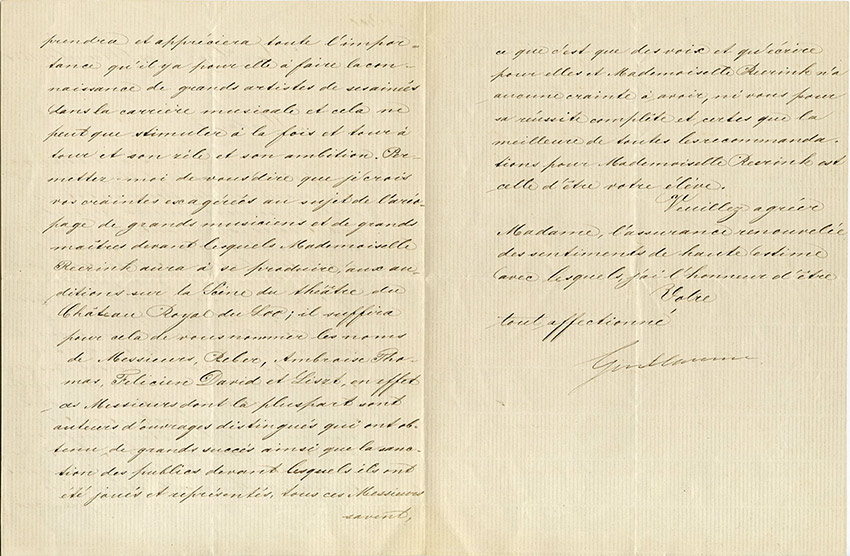 prendra et appréciera toute l'impor-
tance qu'il y a pour elle à faire la con-
naissance de grands artistes de sesainés
dans la carrière musicale et cela ne
peut que stimuler à la fois et tour à
tour et son zèle et son ambition. Per-
mettez-moi de vous dire que je crois
vos craintes exagérées au sujet de l'aréo-
page de grands musiciens et de grands
maîtres devant lesquels Mademoiselle
aura à se produire, aux au-
ditions sur la Scène du théâtre du
Château Royal du Loo; il suffira
pour cela de vous nommer les noms
de Messieurs, Reber, Ambroise Tho-
mas, Félicien David et Liszt, en effet
ces Messieurs dont la pluspart sont
auteurs d'ouvrages distingués qui ont ob-
tenu de grands succés ainsi que la sanc-
tion des publics devant lesquels ils ont
été joués et représentés, tous ces Messieurs
savent,
ce que c'est que des voix et qu'écrire
pour elles et Mademoiselle n'a
aucune crainte à avoir, ni vous pour
sa réussite complète et certes que la
meilleure de toutes les recommanda-
tions pour Mademoiselle est
celle d'être votre élève.
Veuillez agréer
Madame, l'assurance renouvelée
des sentiments de haute estime
avec lesquels j'ai l'honneur d'être
Votre
tout affectionné
Guillaume